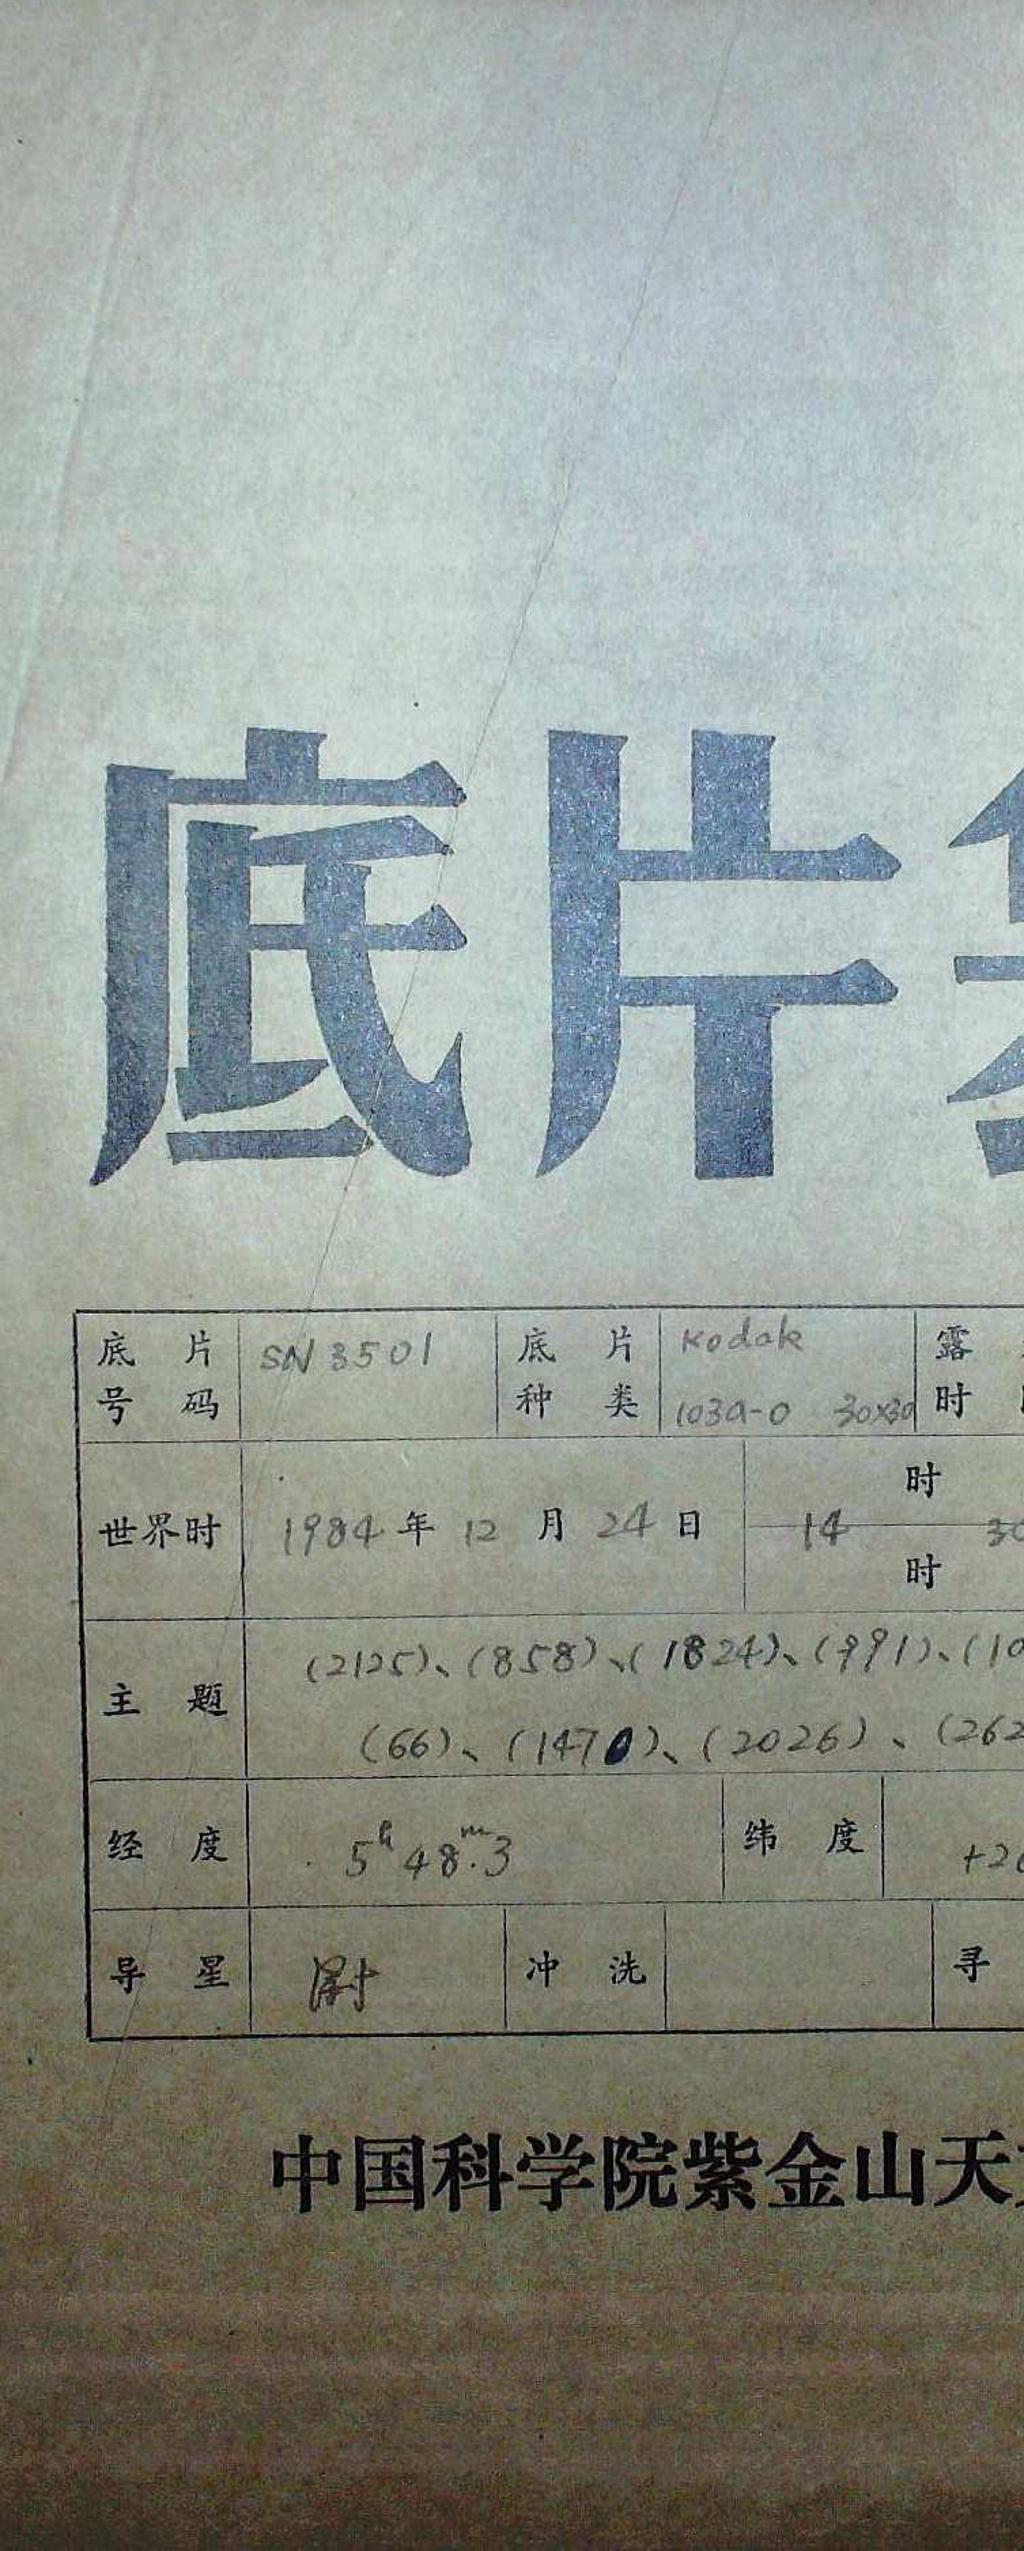 底片
底片 SN 3501 底片 Kodak 露
号码 种类 103a-0 30x30 时
时
世界时 1984年12月24日 14 30
时
(2125)、(858)、(1824)、(991)、(10
主题
(66)、(1470)、(2026)、(262
经度 5h 48m.3 纬度 +20
导星 尉 冲洗 寻
中国科学院紫金山天